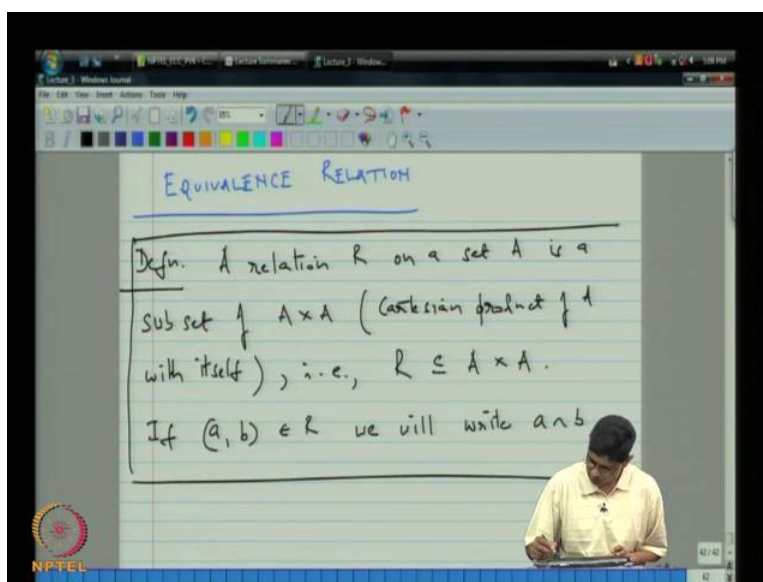 Lecture_3 - Windows Journal
File Edit View Insert Actions Tools Help
EQUIVALENCE RELATION
Defn. A relation R on a set A is a
subset of A × A (Cartesian product of A
with itself), i.e., R ⊆ A × A.
If (a, b) ∈ R we will write a ~ b
NPTEL
42/42
42